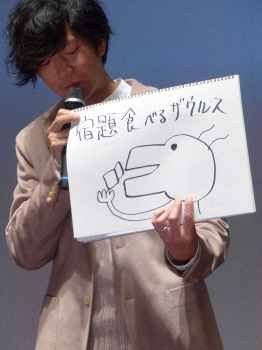 宿題食べるザウルス